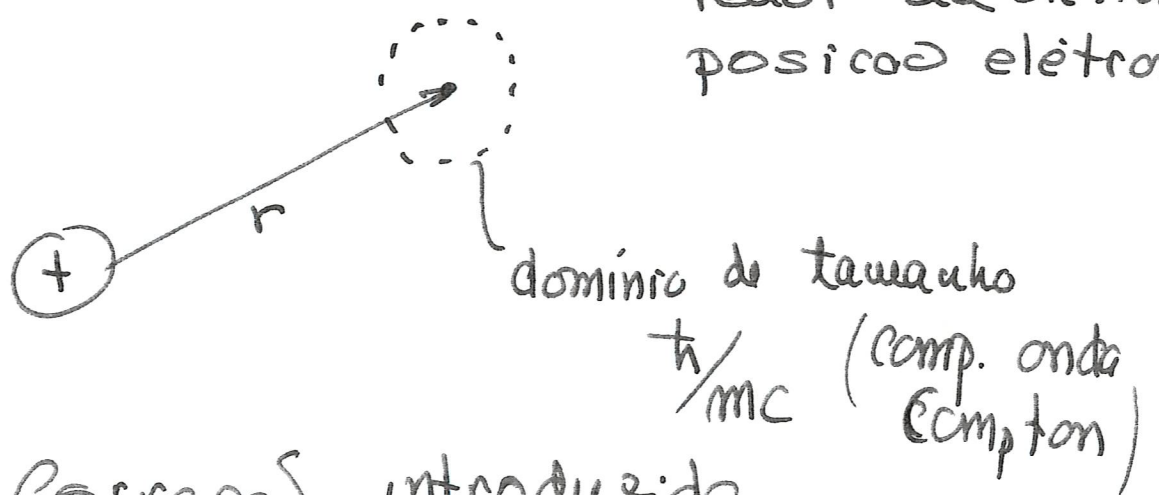 posicao elétro
r
+
domínio de tamanho
ħ/mc (comp. onda
Compton)
Correcao introduzida